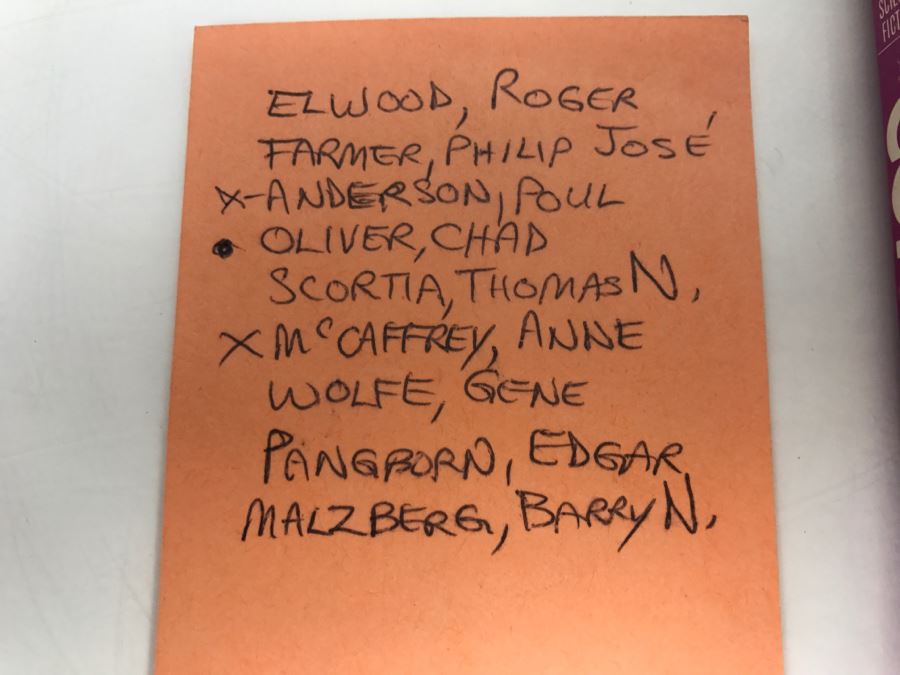 ELWOOD, ROGER
FARMER, PHILIP JOSÉ
X-ANDERSON, POUL
• OLIVER, CHAD
SCORTIA, THOMAS N.
X McCAFFREY, ANNE
WOLFE, GENE
PANGBORN, EDGAR
MALZBERG, BARRY N.